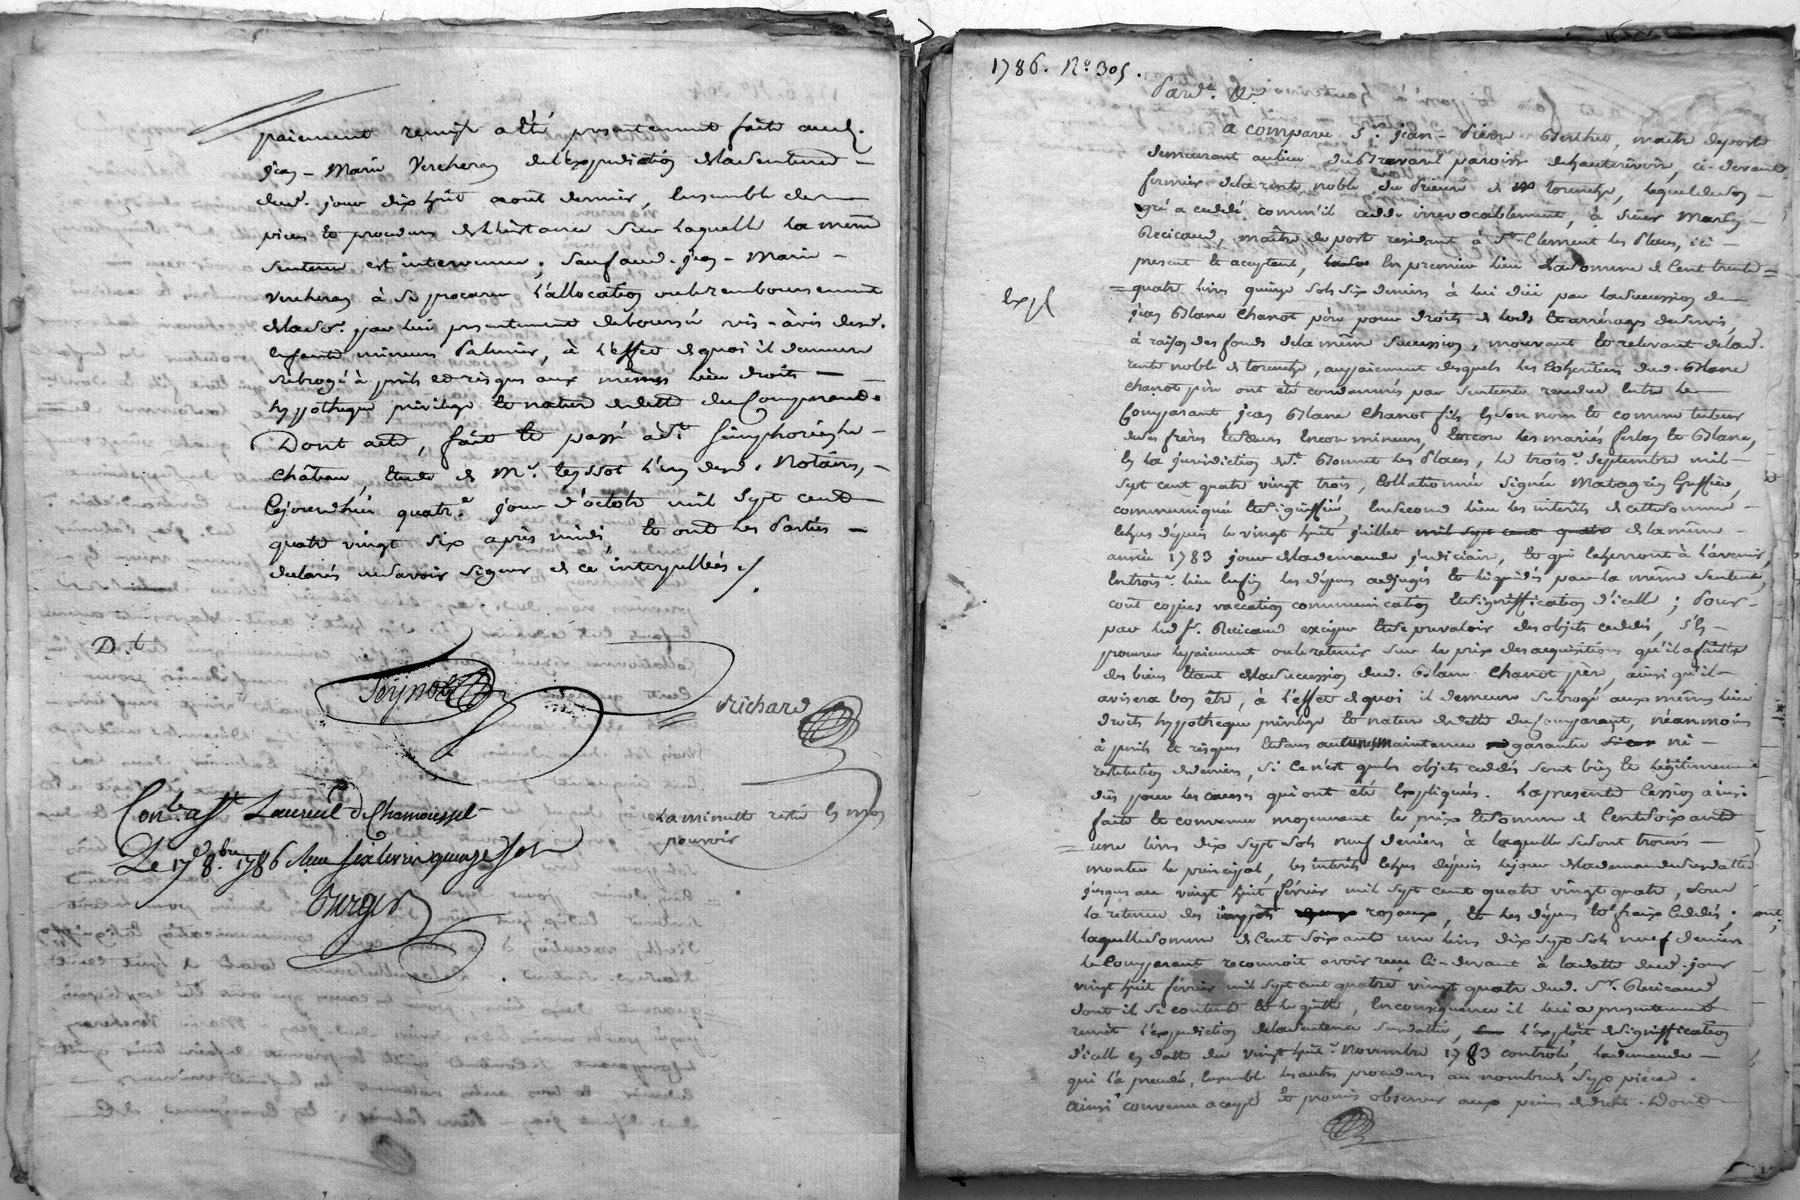 paiement remise a été presentement faite aud.
jean - Marie Vercheras de l'expedition de la sentence
dud. jour dix huit aout dernier, l'ensemble des
pieces et procedures de l'instance sur laquelle la même
sentence est intervenue ; sauf aud. jean - Marie -
Vercheras à se procurer l'allocation ou le remboursement
de la se. par lui presentement deboursée vis-à-vis desd.
enfants mineurs Palmier, à l'effet de quoi il demeure
subrogé à perils et risques aux mêmes lieu droits -
hypotheque privilege et nature de dette du Comparant.
Dont acte, fait et passé à St. Simphorien le -
château, étude de Me. teyssot l'un desd. Notaires, -
Cejourd'hui quatre. jour d'octobre mil sept cent
quatre vingt six après midi, et ont les Parties -
declarés ne savoir signer de ce interpellées ./.
D.t
Teyssot
Richard
La minutte restée en mon
pouvoir
Con.le aSt. Laurent De Chamousset
Le 17e 8.bre 1786 Reçu six livres quinze sols
Berger
1786. No. 305.
Pard. &.
a comparu S. jean - Pierre Berthet, maitre de poste
demeurant au lieu du Bravard paroisse de hauterivoire, ci-devant
fermier de la rente noble du Prieuré de torenche, lequel de son -
gré a cedé, comm'il cede irrevocablement, à sieur Martin -
Recicaud, maître de poste residant à St. Clement les Places, ici -
present et acceptant, En premier lieu La somme de Cent trente =
= quatre livres quinze sols six deniers à lui düe par la succession de
jean Blanc Chanot père pour droits de lods et arrérages de servis,
à raison des fonds de la même succession, mouvant et relevant de lad.
rente noble de torenche, au paiement desquels les Cohéritiers dud. Blanc
Chanot père ont été condamnés par sentence rendue entre le
Comparant jean Blanc Chanot fils en son nom et comme tuteur
de ses frères et sœurs encore mineurs, et encore les mariés ferlay et Blanc,
en la jurisdiction de St. Bonnet les Places, le trois. septembre mil -
sept cent quatre vingt trois, Collationnée signée Matagrin Greffier,
communiquée et signiffiée, En second lieu les interêts de cette somme -
échus depuis le vingt huit juillet mil sept cent quatre de la même
année 1783 jour de la demande judiciaire, et qui echerront à l'avenir,
En trois. lieu enfin les dépens adjugés et liquidés par la même sentence,
coût copies vaccation communication et signiffication d'icelle ; Pour -
par led. Sr. Recicaud exciper et se prevaloir des objets cedés, s'en -
procurer le paiement ou le retenir sur le prix des acquisitions qu'il a faittes
des biens étant de la succession dud. Blanc Chanot père, ainsi qu'il -
avisera bon être, à l'effet de quoi il demeure subrogé aux mêmes lieu
droits hypotheque privilege et nature de dette du Comparant, néanmoins
à perils et risques et sans aucune maintenue garantie ni -
restitution de deniers, si ce n'est que les objets cedés sont bien et legitimement
dûs pour les causes qui ont été expliquées. La presente Cession ainsi
faite et convenue moyennant le prix et somme de Cent soixante
= une livres dix sept sols neuf deniers à laquelle se sont trouvés -
monter le principal, les interêts échus depuis le jour de la demande susdatté
jusques au vingt huit fevrier mil sept cent quatre vingt quatre, sous
la retenue des impôts royaux, et les dépens et fraix cedés ;
laquelle somme de Cent soixante une livres dix sept sols neuf deniers
le Comparant reconnoit avoir reçu Ci-devant à la datte dud. jour
vingt huit fevrier mil sept cent quatre vingt quatre dud. Sr. Recicaud
dont il se contente et le quitte, En consequence il lui a presentement
remit l'expedition de la sentence susdattée, l'exploit de signiffication
d'icelle en datte du vingt huit. Novembre 1783 controlé, la demande -
qui l'a precedé, ensemble les autres procedures au nombre de sept pièces.
Ainsi convenu accepté et promis observer aux peines de droit. Dont
Exp.